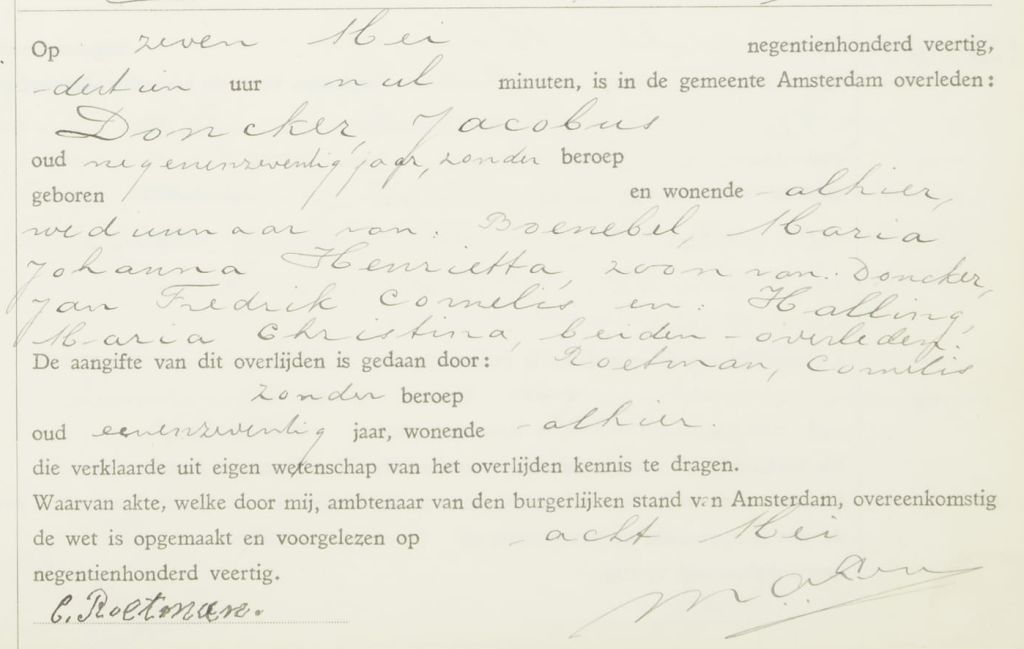 Op zeven Mei negentienhonderd veertig,
dertien uur nul minuten, is in de gemeente Amsterdam overleden:
Doncker, Jacobus
oud negenenzeventig jaar, zonder beroep
geboren en wonende alhier,
weduwnaar van: Boenebel, Maria
Johanna Henrietta, zoon van: Doncker,
Jan Fredrik Cornelis en: Halling,
Maria Christina, beiden overleden.
De aangifte van dit overlijden is gedaan door: Roetman, Cornelis
zonder beroep
oud eenenzeventig jaar, wonende alhier.
die verklaarde uit eigen wetenschap van het overlijden kennis te dragen.
Waarvan akte, welke door mij, ambtenaar van den burgerlijken stand van Amsterdam, overeenkomstig
de wet is opgemaakt en voorgelezen op acht Mei
negentienhonderd veertig.
C. Roetman.